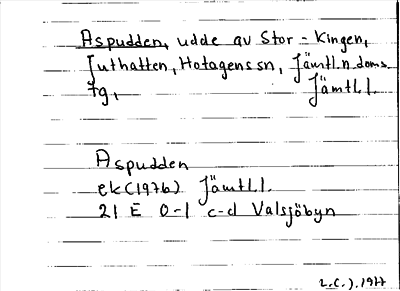 Aspudden, udde av Stor-Kingen,
Juthatten, Hotagens sn, Jämtl.n.doms.
tg, Jämtl.l.
Aspudden
ek (1976) Jämtl.l.
21 E 0-1 c-d Valsjöbyn
L.C.J. 1977